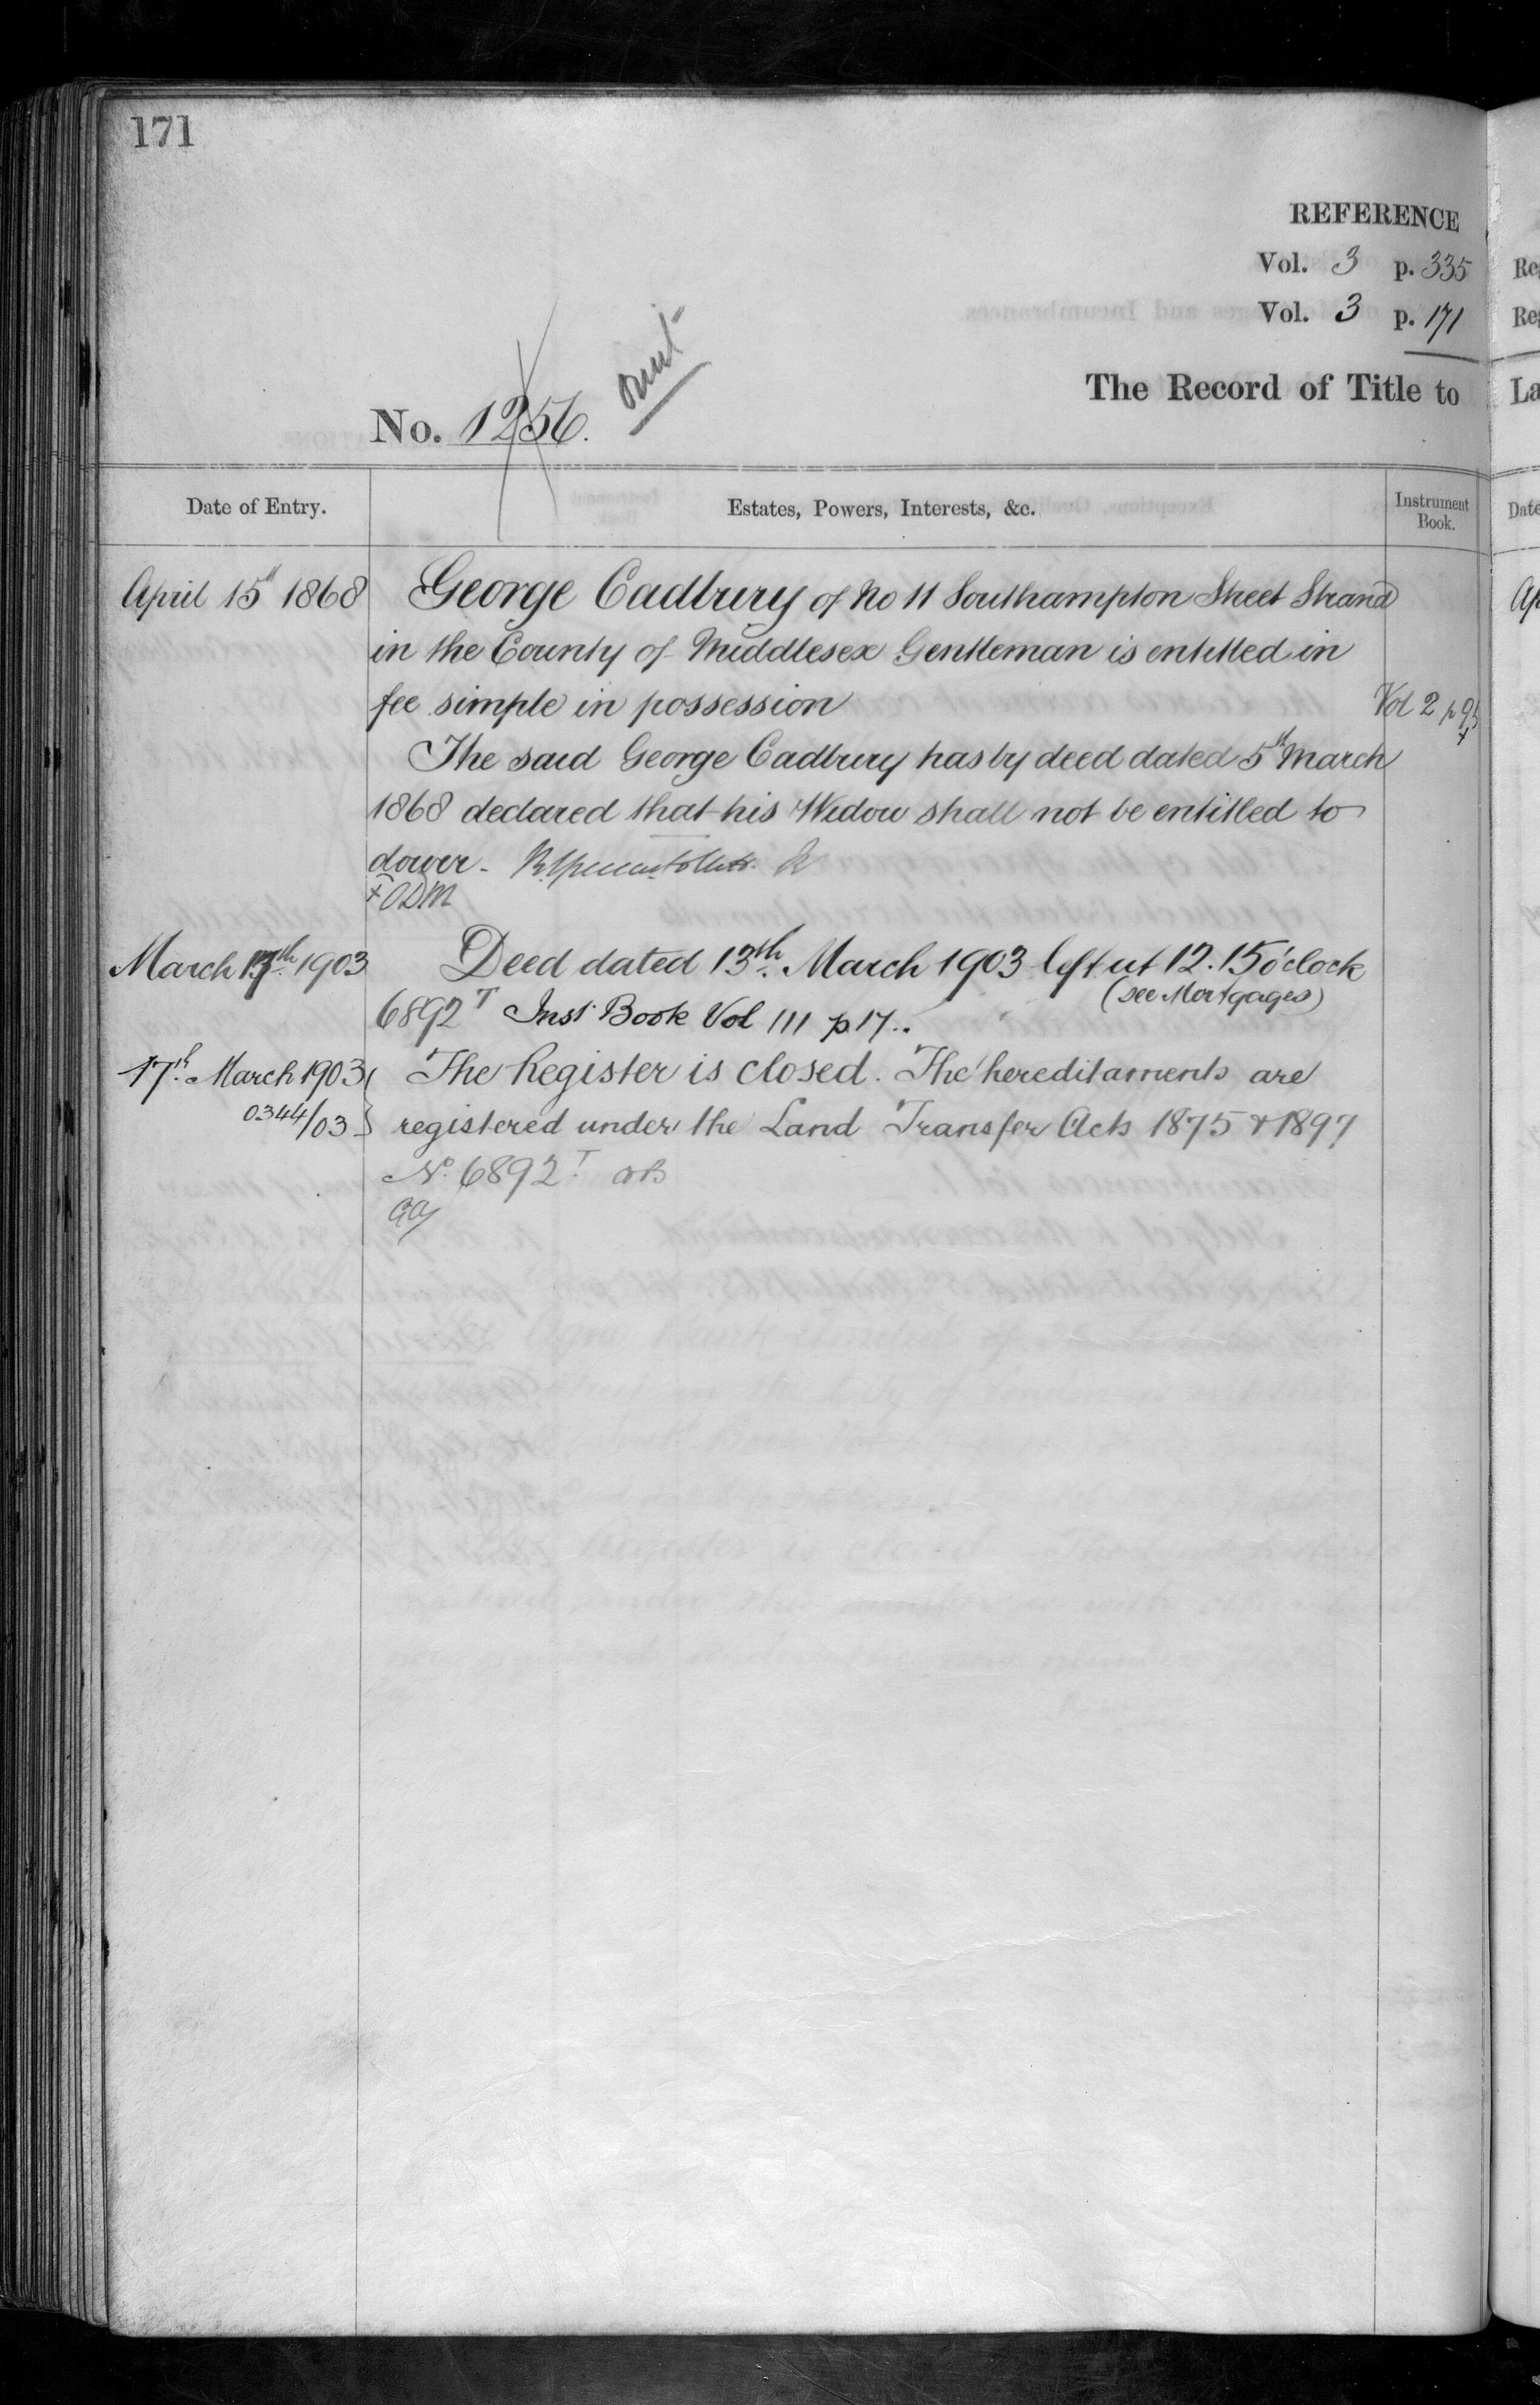 171
REFERENCE
Vol. 3 p. 335
Vol. 3 p. 171
The Record of Title to
No. 1256.
Date of Entry.
Estates, Powers, Interests, &c.
Instrument
Book.
April 15th 1868
George Cadbury of No 11 Southampton Street Strand
in the County of Middlesex Gentleman is entitled in
fee simple in possession
Vol 2 p
The said George Cadbury has by deed dated 5th March
1868 declared that his Widow shall not be entitled to
dower.
March 13th 1903
Deed dated 13th March 1903 left at 12.15 o'clock
(see Mortgages)
6892 T Inst Book Vol 111 p 17..
17th March 1903
0344/03
The Register is closed. The hereditaments are
registered under the Land Transfer Acts 1875 & 1897
No. 6892 T
Re
Re
La
Date
Ap